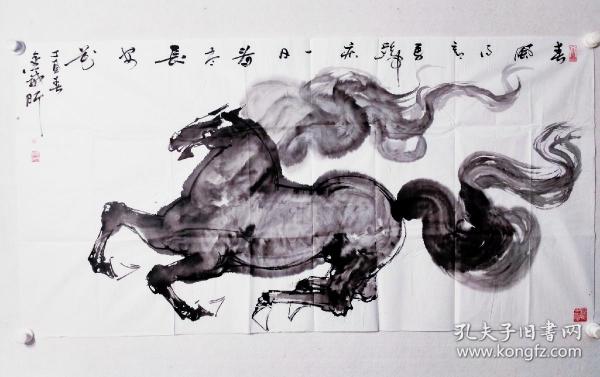 春風得意馬蹄疾一日看尽長安花
丁酉春
孔夫子旧书网
www.kongfz.com